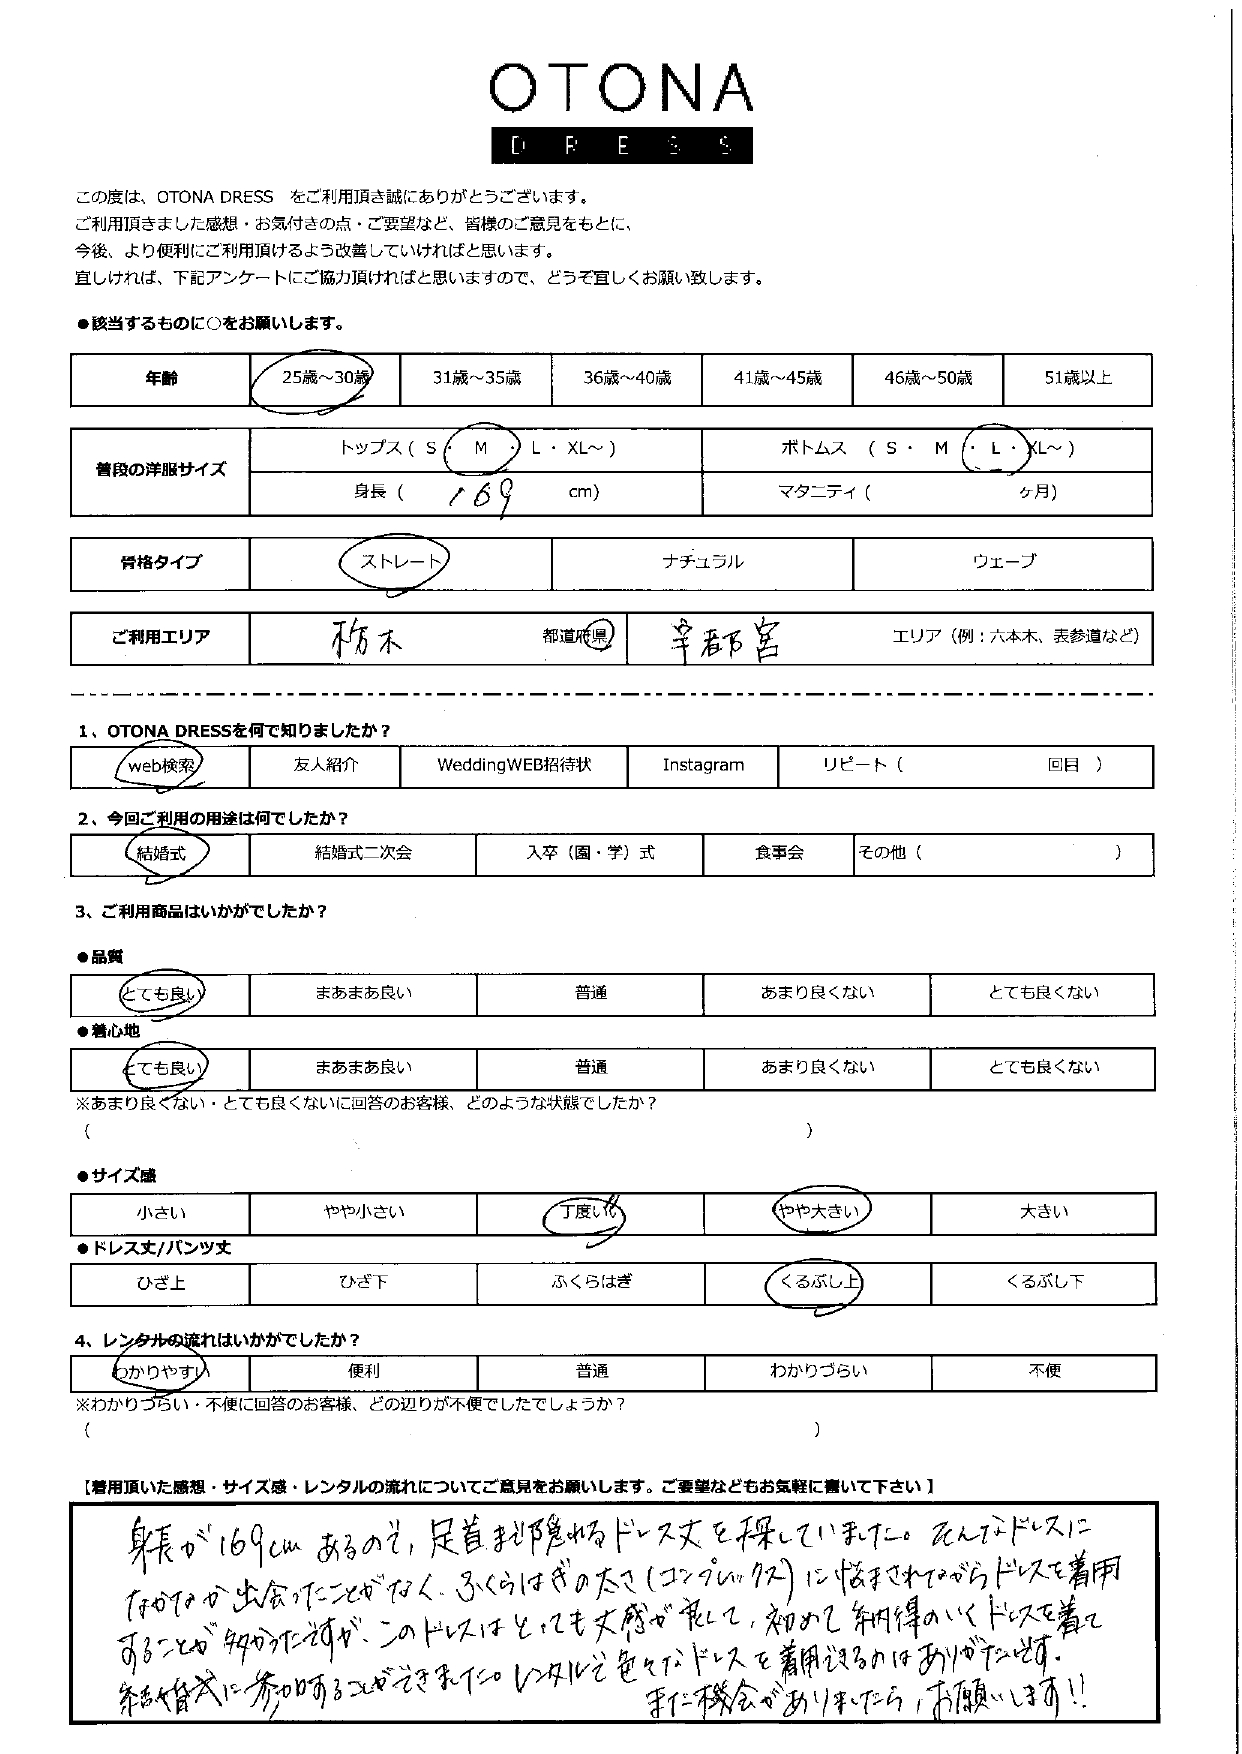 OTONA
DRESS
この度は、OTONA DRESS　をご利用頂き誠にありがとうございます。
ご利用頂きました感想・お気付きの点・ご要望など、皆様のご意見をもとに、
今後、より便利にご利用頂けるよう改善していければと思います。
宜しければ、下記アンケートにご協力頂ければと思いますので、どうぞ宜しくお願い致します。
●該当するものに○をお願いします。
年齢 25歳～30歳 31歳～35歳 36歳～40歳 41歳～45歳 46歳～50歳 51歳以上
普段の洋服サイズ トップス ( S ・ M ・ L ・ XL～ ) ボトムス ( S ・ M ・ L ・ XL～ )
身長 ( 169 cm) マタニティ ( ヶ月)
骨格タイプ ストレート ナチュラル ウェーブ
ご利用エリア 栃木 都道府県 宇都宮 エリア（例：六本木、表参道など）
1、OTONA DRESSを何で知りましたか？
web検索 友人紹介 WeddingWEB招待状 Instagram リピート（ 回目 ）
2、今回ご利用の用途は何でしたか？
結婚式 結婚式二次会 入卒（園・学）式 食事会 その他（ ）
3、ご利用商品はいかがでしたか？
●品質
とても良い まあまあ良い 普通 あまり良くない とても良くない
●着心地
とても良い まあまあ良い 普通 あまり良くない とても良くない
※あまり良くない・とても良くないに回答のお客様、どのような状態でしたか？
（ ）
●サイズ感
小さい やや小さい 丁度いい やや大きい 大きい
●ドレス丈/パンツ丈
ひざ上 ひざ下 ふくらはぎ くるぶし上 くるぶし下
4、レンタルの流れはいかがでしたか？
わかりやすい 便利 普通 わかりづらい 不便
※わかりづらい・不便に回答のお客様、どの辺りが不便でしたでしょうか？
（ ）
【着用頂いた感想・サイズ感・レンタルの流れについてご意見をお願いします。ご要望などもお気軽に書いて下さい 】
身長が169cmあるので、足首まで隠れるドレス丈を探していました。そんなドレスに
なかなか出会ったことがなく、ふくらはぎの太さ(コンプレックス)に悩まされながらドレスを着用
することが多かったですが、このドレスはとっても丈感が良くて、初めて納得のいくドレスを着て
結婚式に参加することができました。レンタルで色々なドレスを着用できるのはありがたいです。
また機会がありましたら、お願いします!!